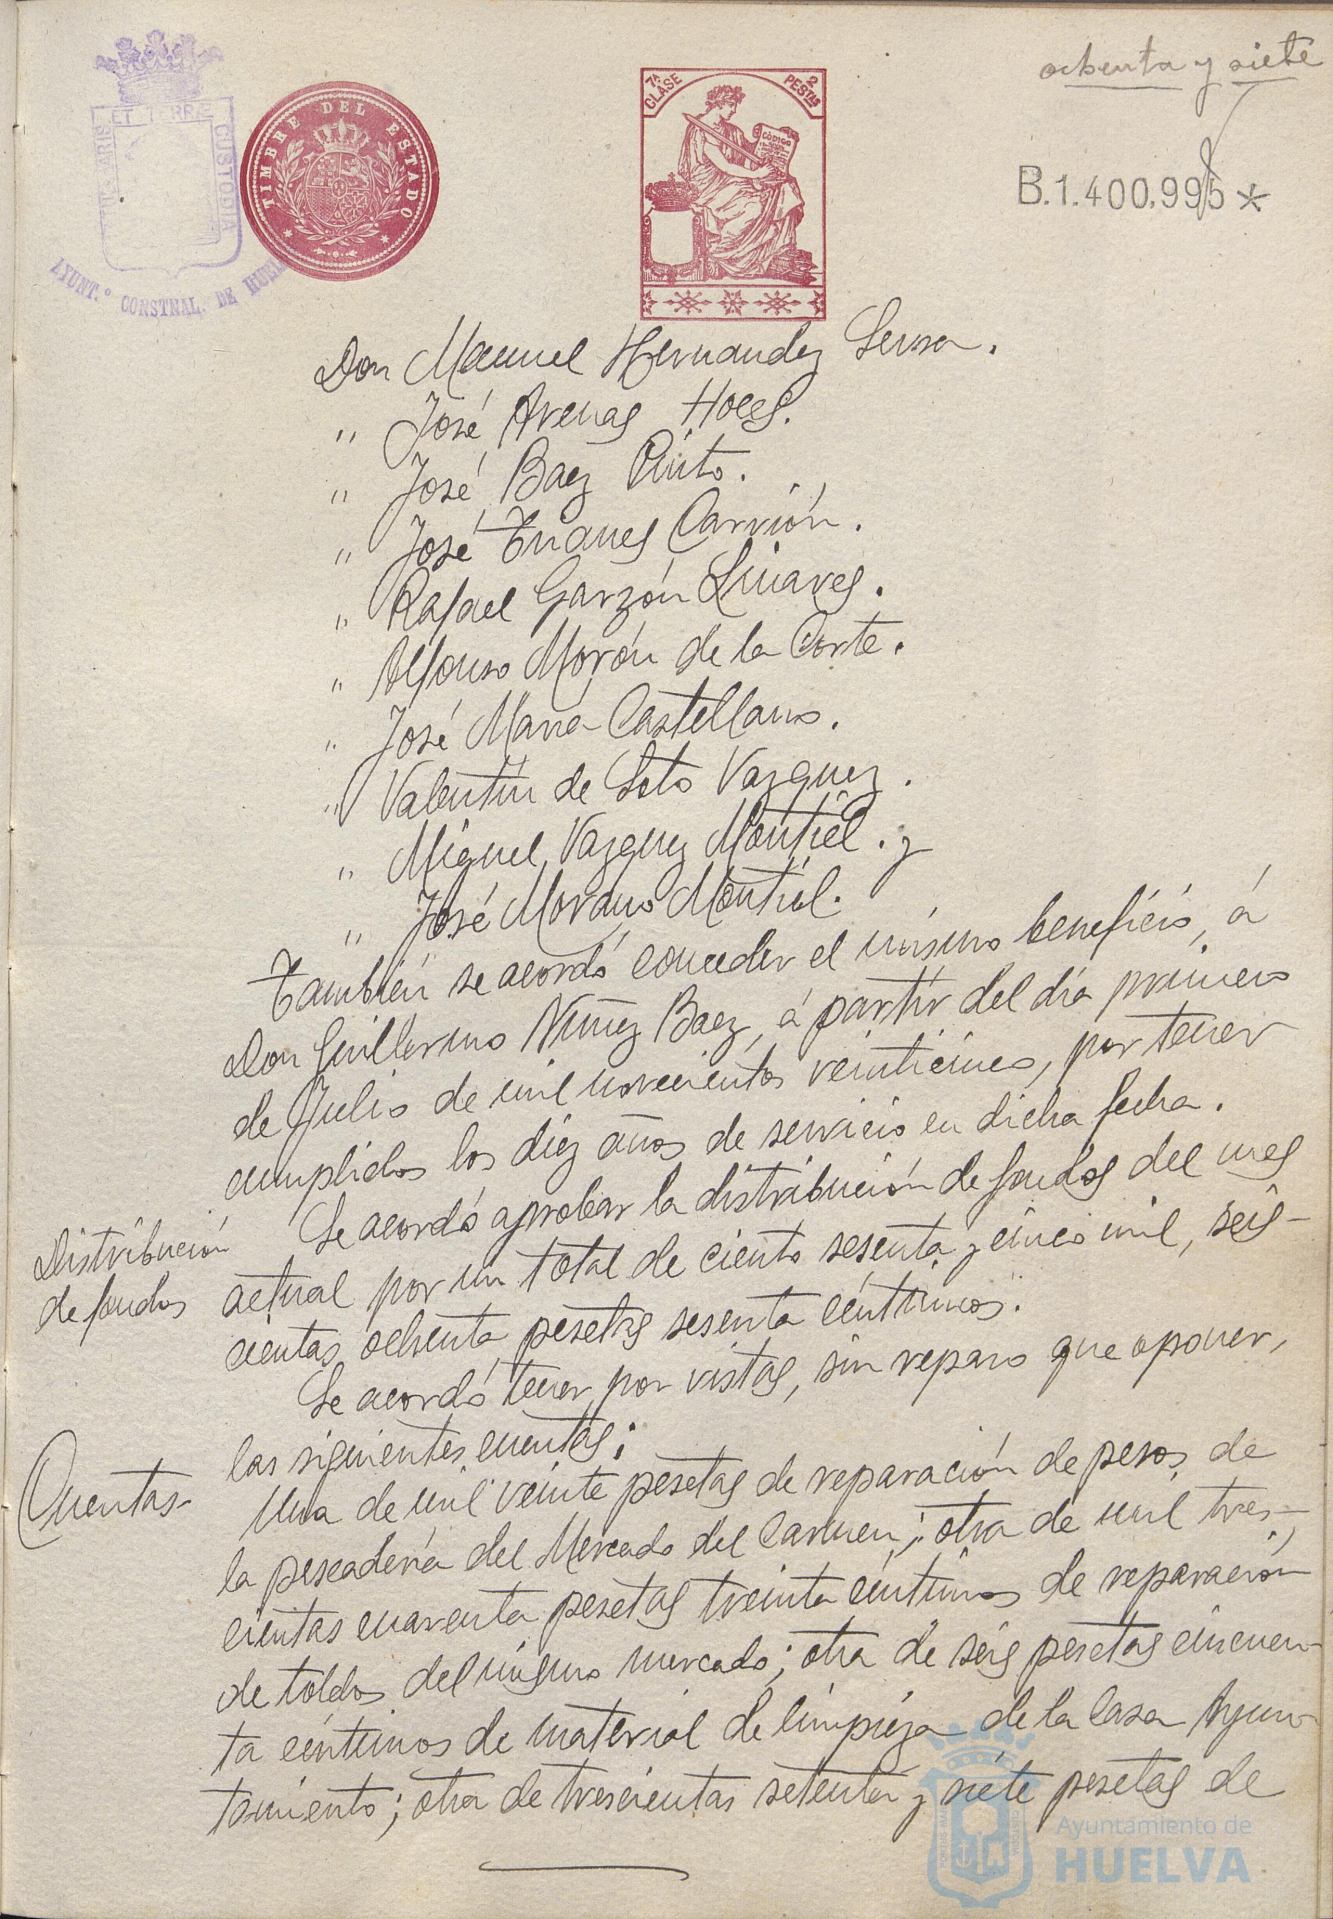 ochenta y siete
PORTUS MARIS ET TERRÆ CUSTODIA
AYUNT.º CONSTNAL. DE HUELVA
TIMBRE DEL ESTADO
7ª CLASE
2 PESTAS
CODIGO
B.1.400,995 *
Don Manuel Hernandez Serra.
" José Arenas Hoces.
" José Baez Pinto.
" José Trianes Carrión.
" Rafael Garzón Linares.
" Alfonso Morón de la Corte.
" José Maria Castellano.
" Valentín de Soto Vazquez.
" Miguel Vazquez Montiel. y
" José Morano Montiel.
También se acordó conceder el mismo beneficio, á
Don Guillermo Nuñez Baez, á partir del día primero
de Julio de mil novecientos veinticinco, por tener
cumplidos los diez años de servicio en dicha fecha.
Distribución
de fondos
Se acordó aprobar la distribución de fondos del mes
actual por un total de ciento sesenta y cinco mil, seis-
cientas ochenta pesetas sesenta céntimos.
Se acordó tener por vistas, sin reparo que oponer,
Cuentas.
las siguientes cuentas:
Una de mil veinte pesetas de reparación de pesos de
la pescadería del Mercado del Carmen; otra de mil tres-
cientas cuarenta pesetas treinta céntimos de reparación
de toldos del mismo mercado; otra de seis pesetas cincuen-
ta céntimos de material de limpieza de la Casa Ayun-
tamiento; otra de trescientas setenta y siete pesetas de
Ayuntamiento de
HUELVA